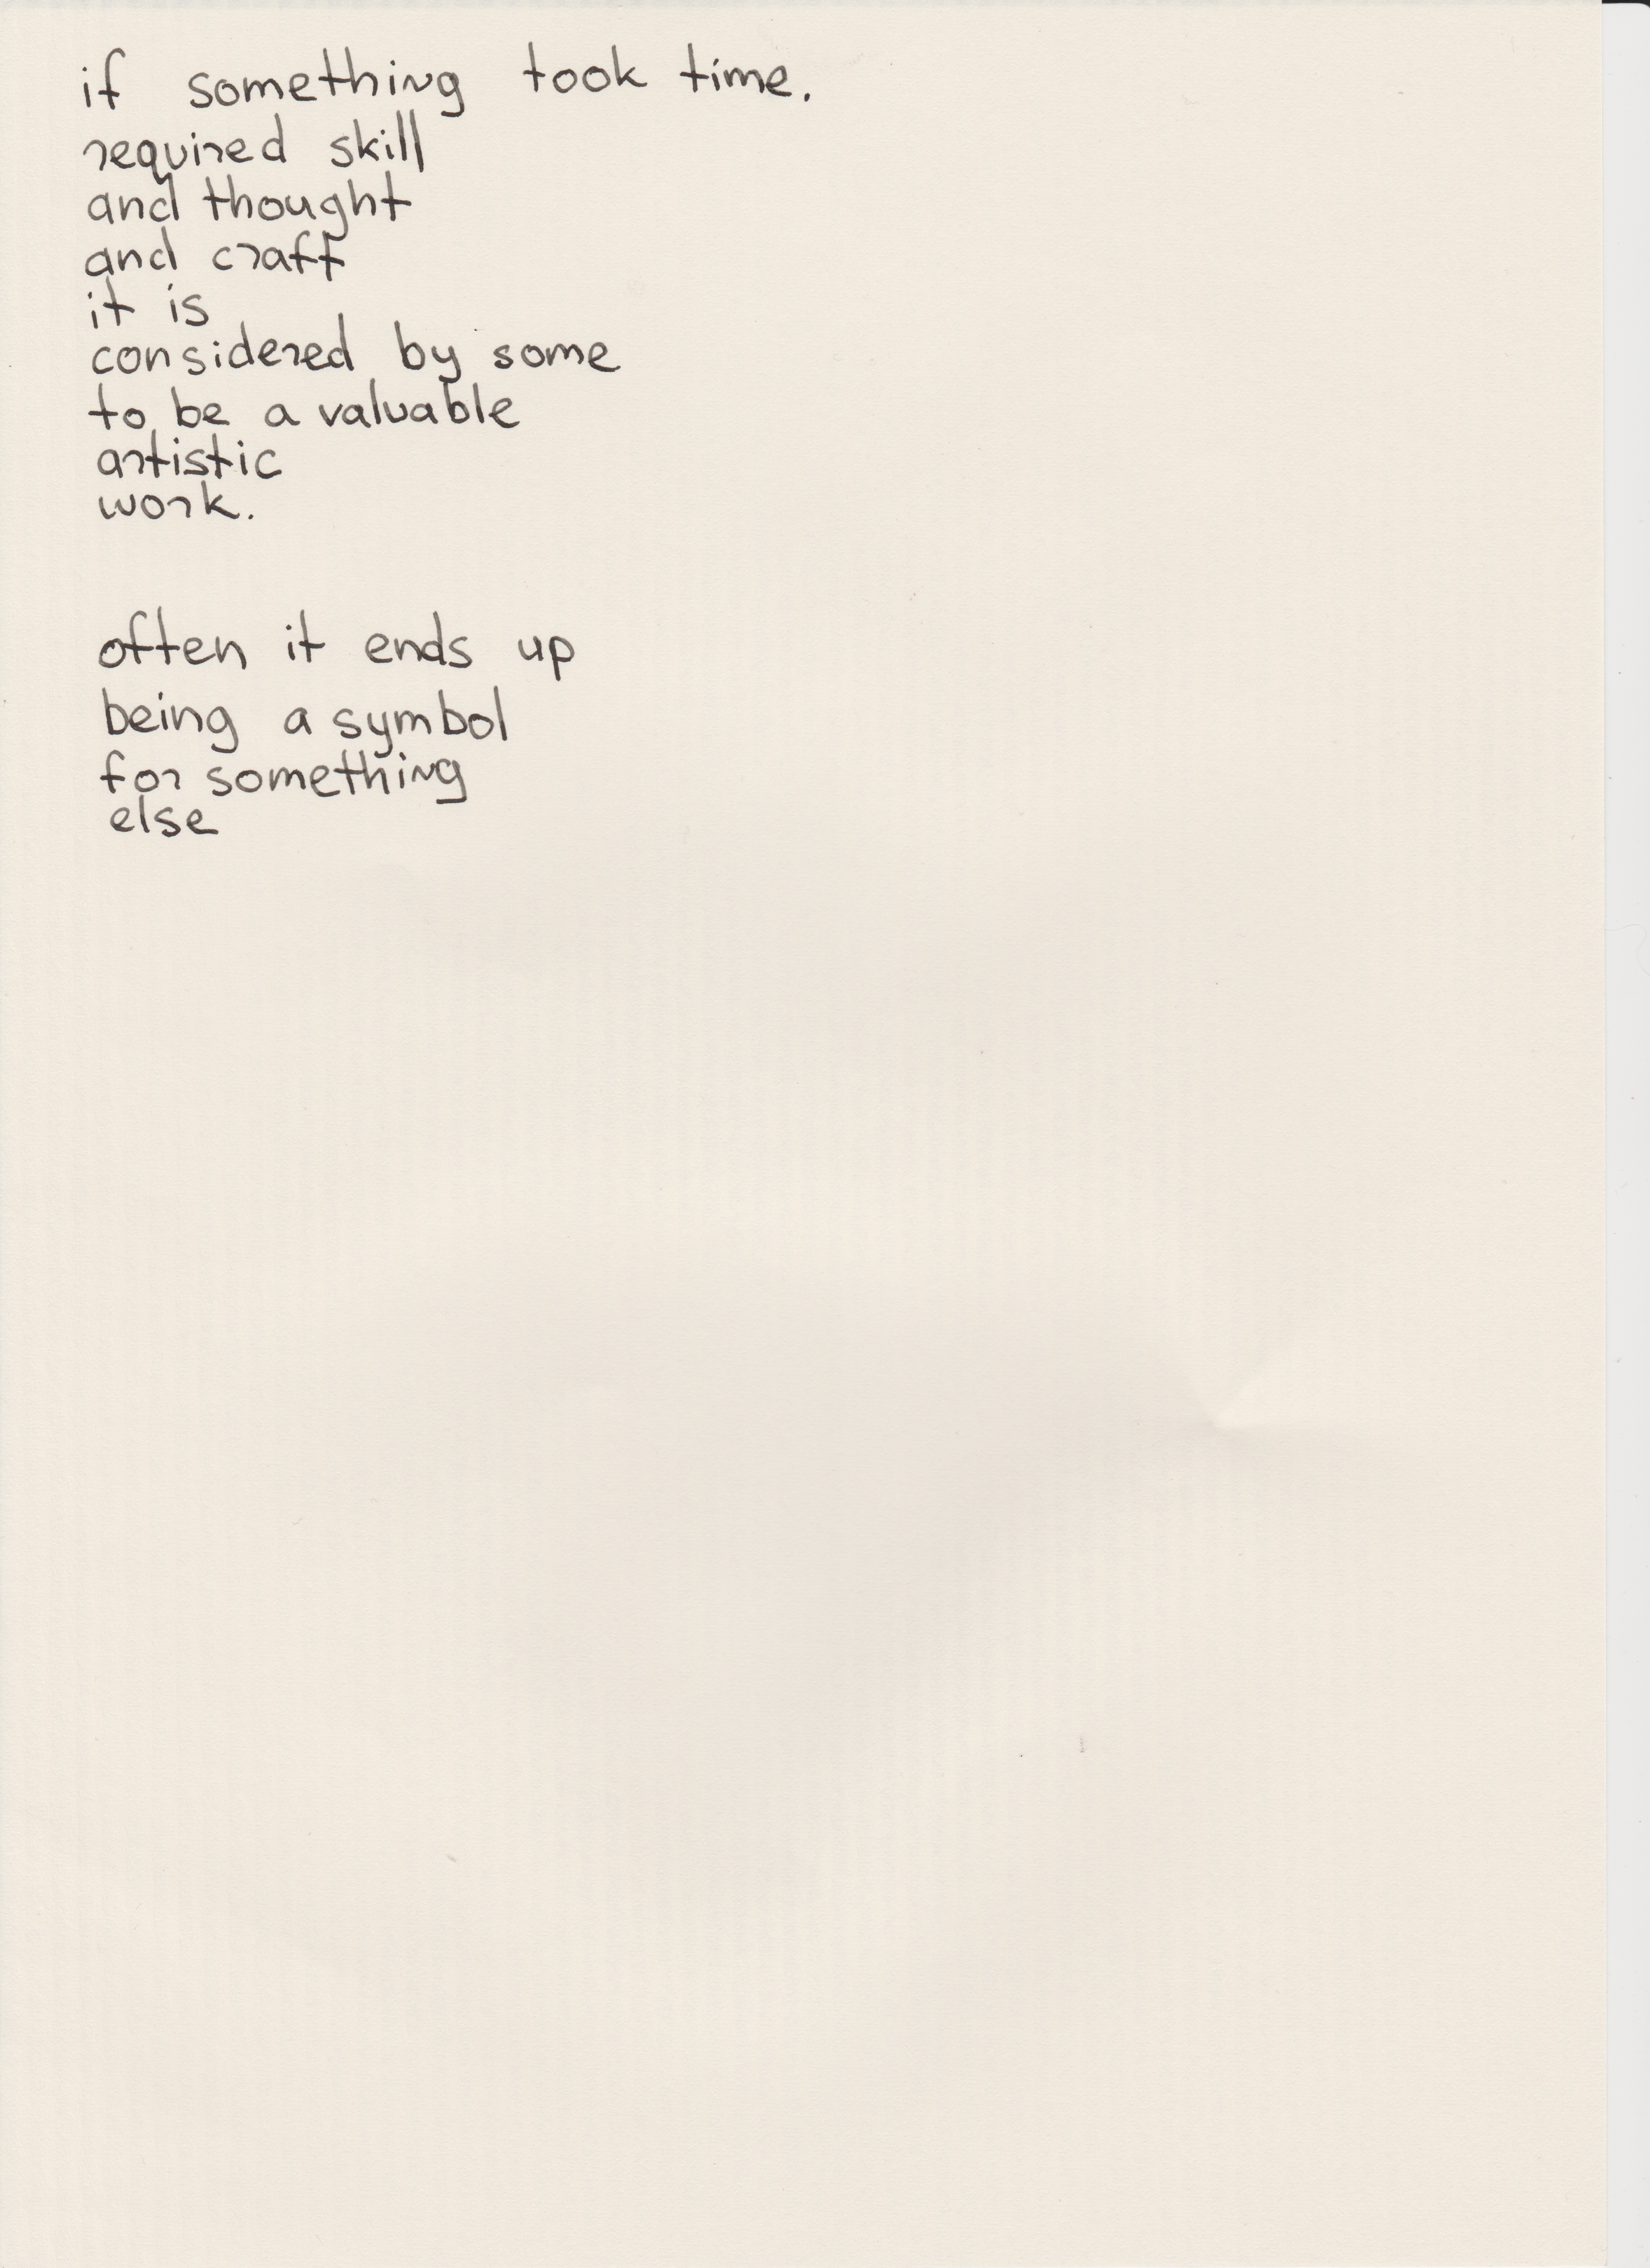 if something took time.
required skill
and thought
and craft
it is
considered by some
to be a valuable
artistic
work.
often it ends up
being a symbol
for something
else